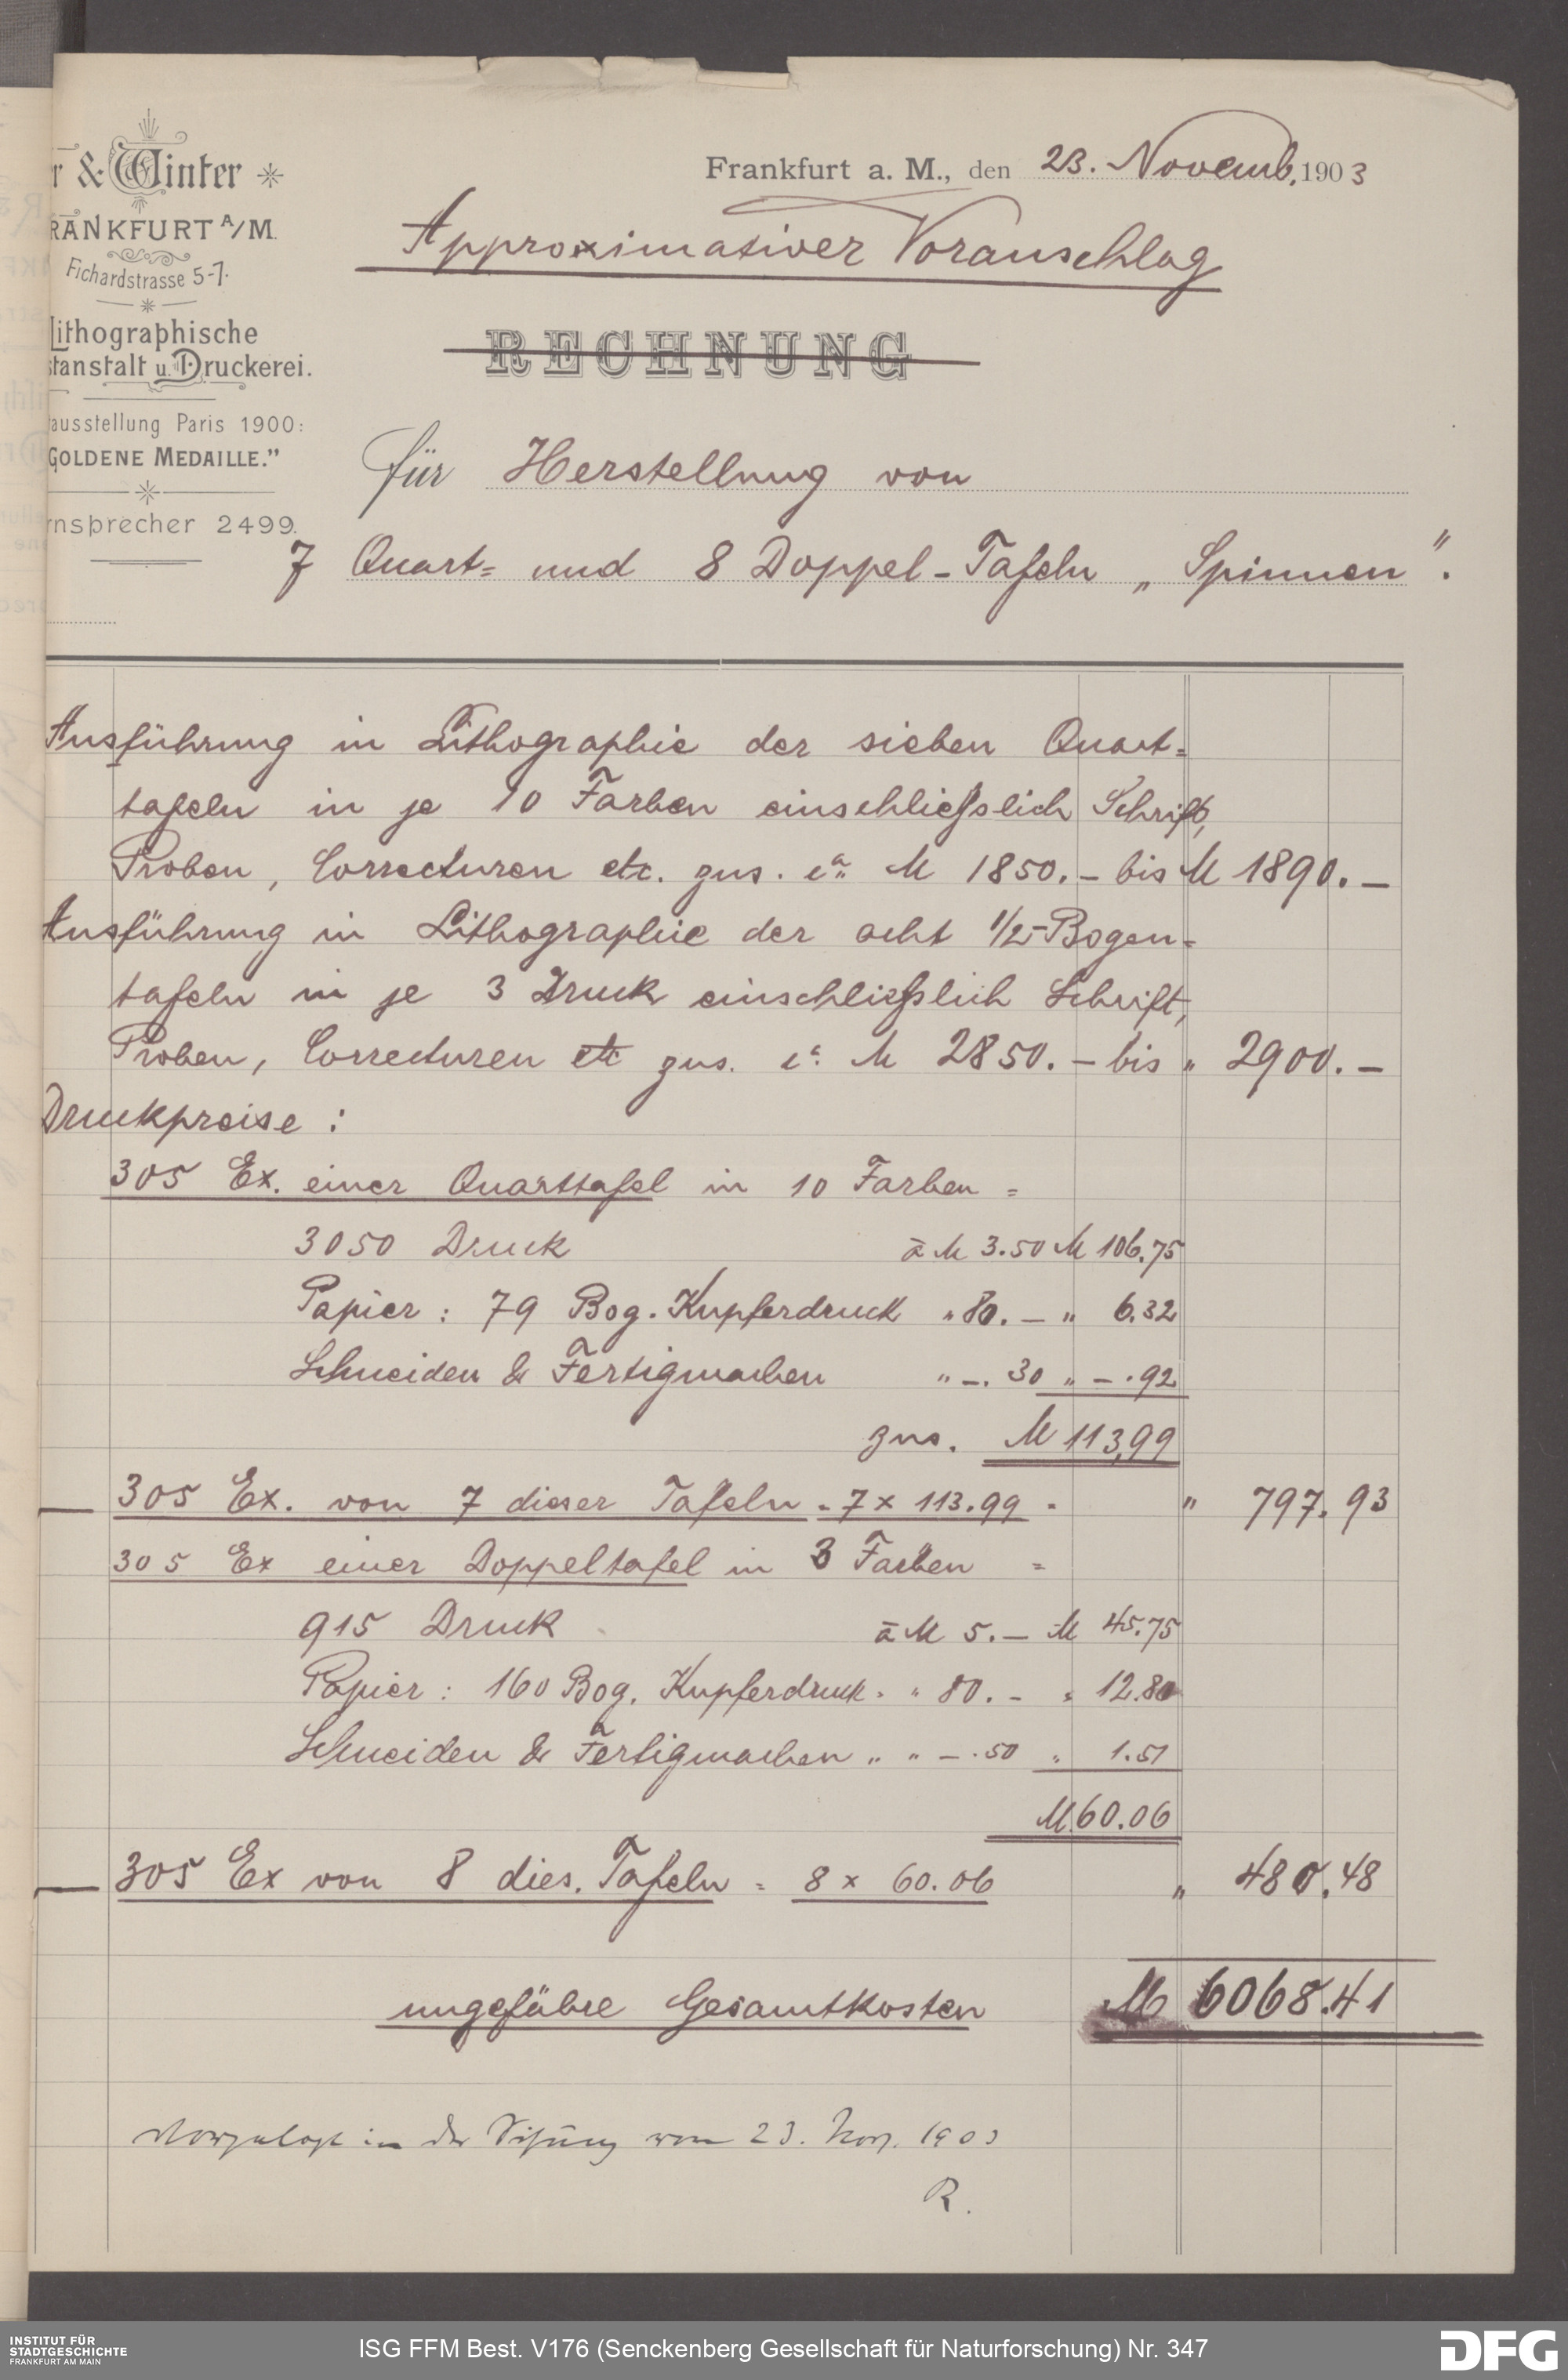 r & Winter
RANKFURT A/M.
Fichardstrasse 5-7.
Lithographische
stanstalt u. Druckerei.
ausstellung Paris 1900:
GOLDENE MEDAILLE."
rnsprecher 2499.
Frankfurt a. M., den 23. Novemb. 1903
Approximativer Voranschlag
RECHNUNG
für Herstellung von
7 Quart= und 8 Doppel-Tafeln „Spinnen".
Ausführung in Lithographie der sieben Quart=
tafeln in je 10 Farben einschliesslich Schrift,
Proben, Correcturen etc. zus. ca. M 1850.– bis M 1890.–
Ausführung in Lithographie der acht 1/2-Bogen=
tafeln in je 3 Druck einschliesslich Schrift,
Proben, Correcturen etc zus. ca. M 2850.– bis " 2900.–
Druckpreise:
305 Ex. einer Quarttafel in 10 Farben =
3050 Druck à M 3.50 M 106.75
Papier: 79 Bog. Kupferdruck " 80.– " 6.32
Schneiden & Fertigmachen " –.30 " –.92
zus. M 113,99
305 Ex. von 7 dieser Tafeln = 7 x 113.99 = " 797.93
305 Ex einer Doppeltafel in 3 Farben =
915 Druck à M 5.– M 45.75
Papier: 160 Bog. Kupferdruck " " 80.– " 12.80
Schneiden & Fertigmachen " " –.50 " 1.51
M 60.06
305 Ex von 8 dies. Tafeln = 8 x 60.06 " 480.48
ungefähre Gesamtkosten M 6068.41
Vorgelegt in der Sitzung vom 23. Nov. 1903
R.
INSTITUT FÜR
STADTGESCHICHTE
FRANKFURT AM MAIN
ISG FFM Best. V176 (Senckenberg Gesellschaft für Naturforschung) Nr. 347
DFG